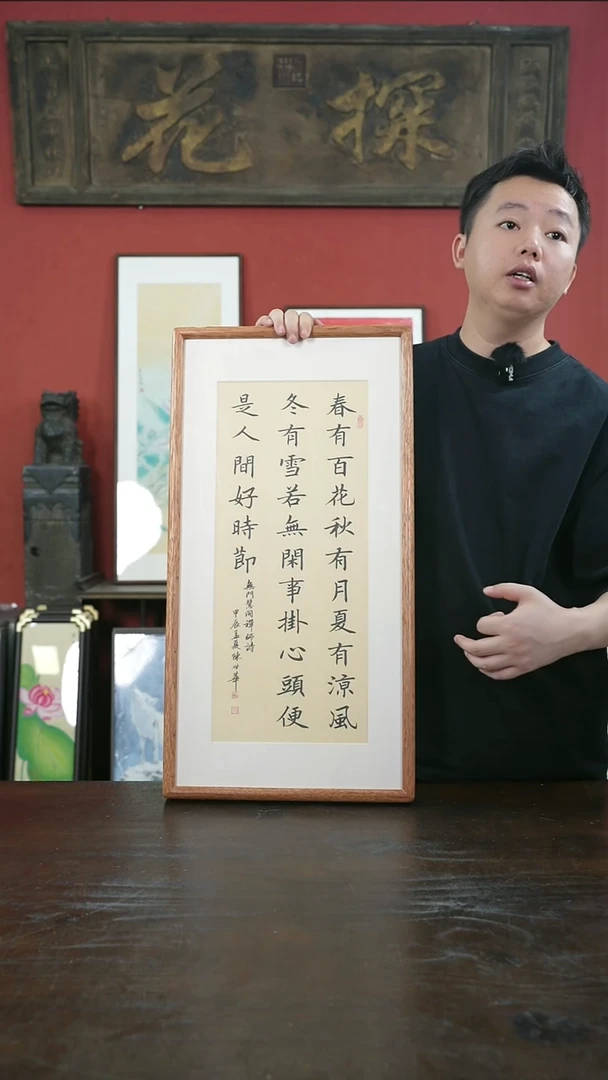 探花
春有百花秋有月夏有涼風
冬有雪若無閑事掛心頭便
是人間好時節
無門慧開禪師詩
甲辰孟夏陳華